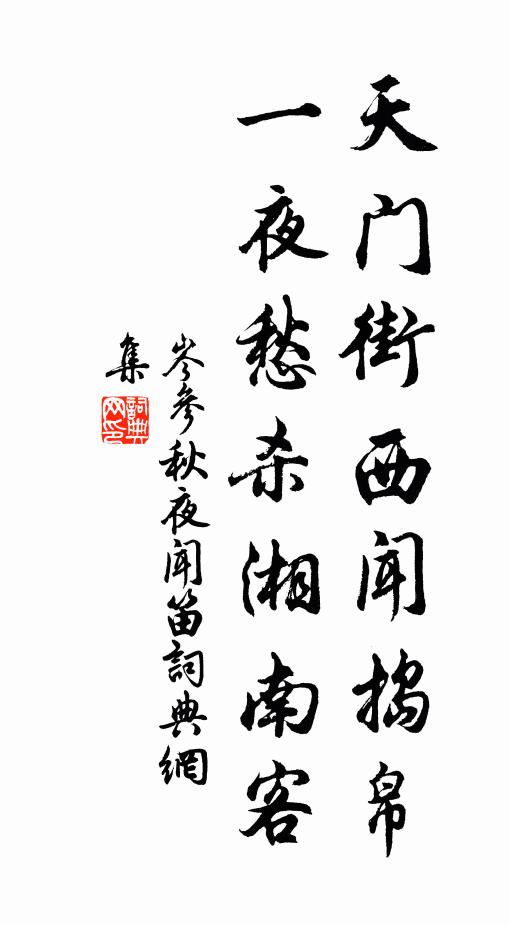 天门街西闻捣帛
一夜愁杀湘南客
岑參秋夜闻笛詞典網
集
詞典网印